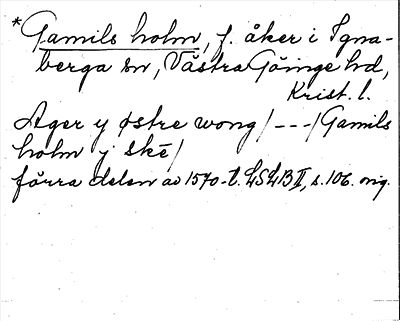 *Gamils holm, f. åker i Igna-
berga sn, Västra Göinge hd,
Krist. l.
Ager y østre wong/---/Gamils
holm y skē/
förra delen av 1570-t. LSLB II, s. 106. orig.